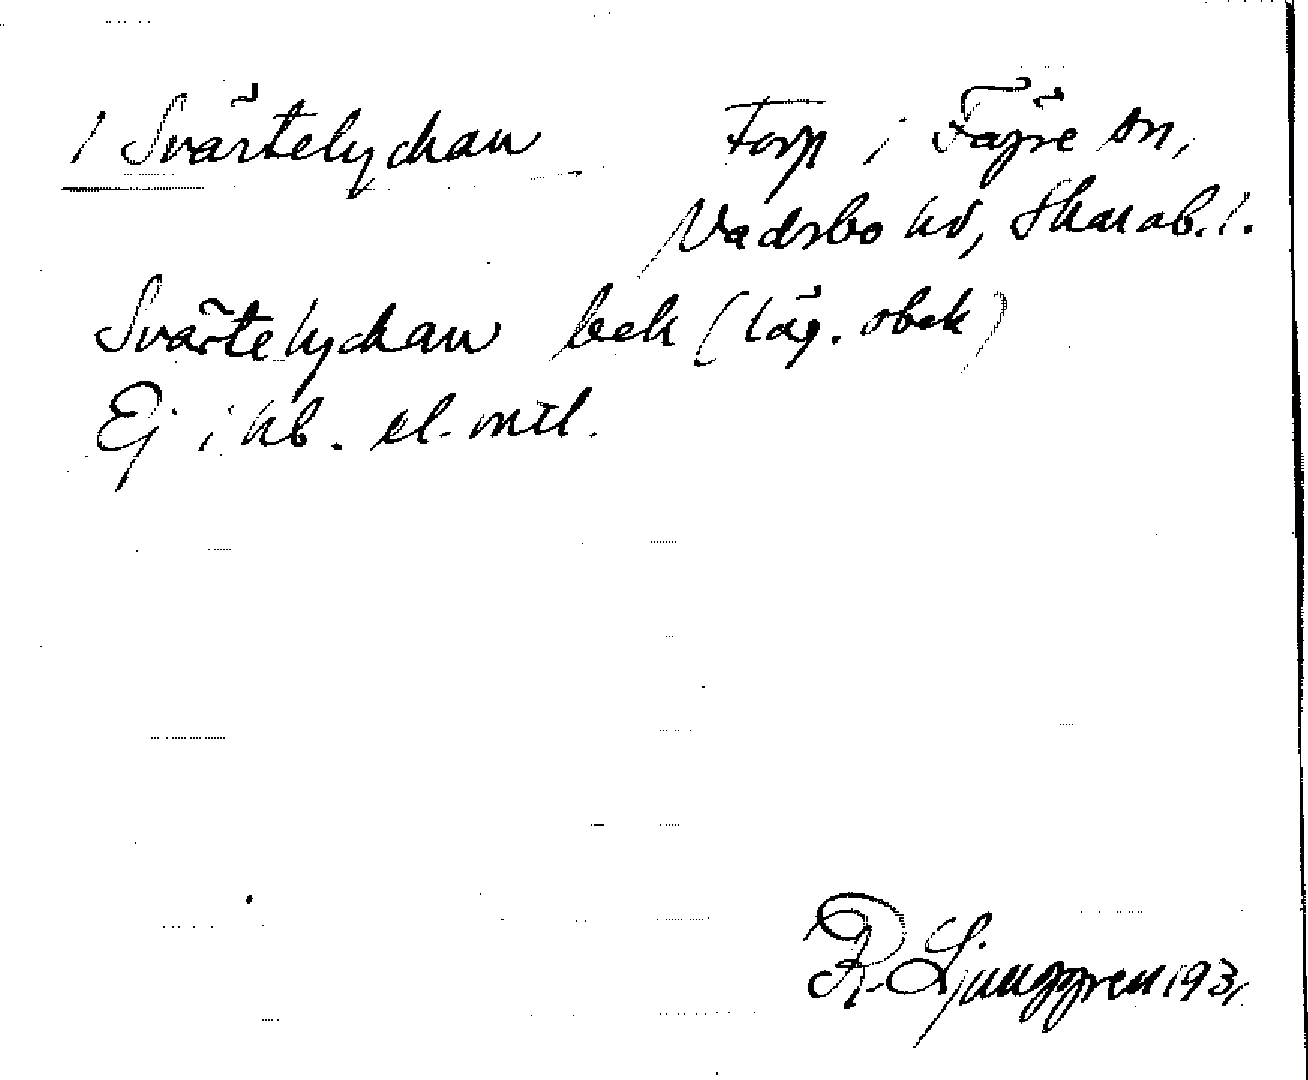 1 Svärtelyckan Torp i Fägre sn,
Vadsbo hd, Skarab. l.
Svärtelyckan bek (läg. obek)
Ej i kb. el. mtl.
R. Ljunggren 1931